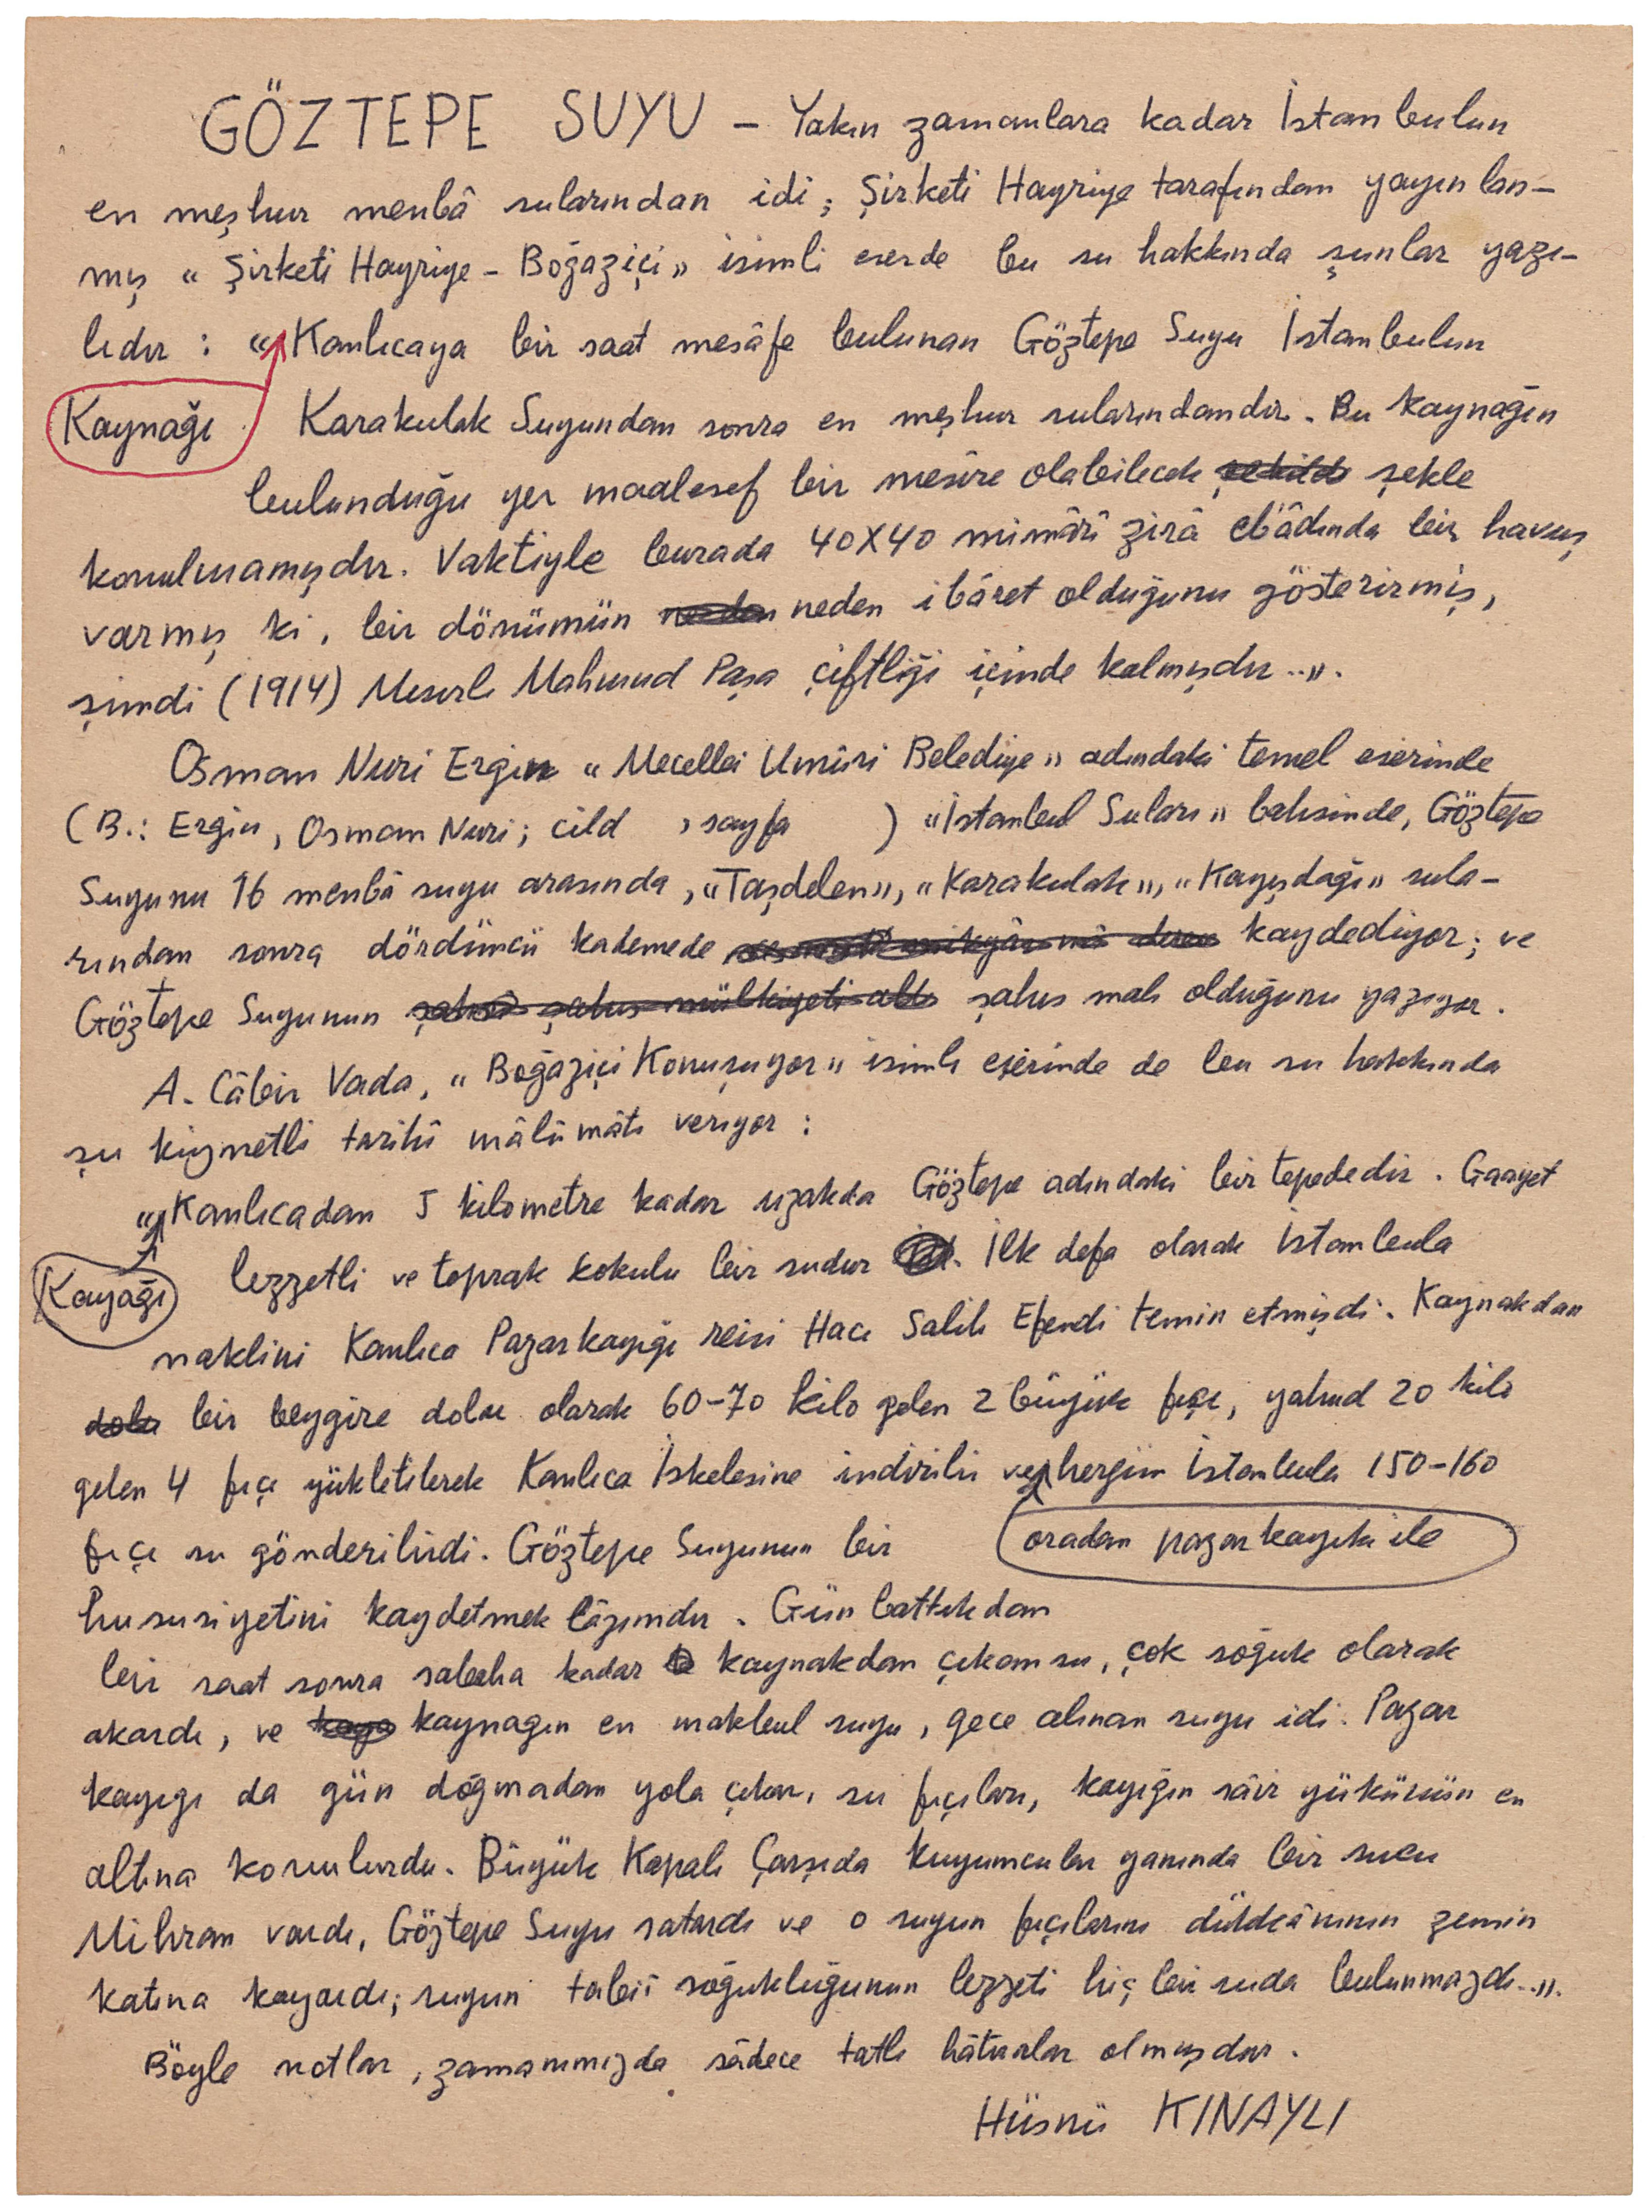 GÖZTEPE SUYU – Yakın zamanlara kadar İstanbulun
en meşhur menbâ sularından idi; Şirketi Hayriye tarafından yayınlan-
mış « Şirketi Hayriye – Boğaziçi » isimli eserde bu su hakkında şunlar yazı-
lıdır : « Kanlıcaya bir saat mesâfe bulunan Göztepe Suyu İstanbulun
Kaynağı Karakulak Suyundan sonra en meşhur sularındandır. Bu kaynağın
bulunduğu yer maalesef bir mesire olabilecek şekilde şekle
konulmamışdır. Vaktiyle burada 40X40 mimârî zirâ eb'âdında bir havuz
varmış ki, bir dönümün neden neden ibâret olduğunu gösterirmiş,
şimdi (1914) Mısırlı Mahmud Paşa çiftliği içinde kalmışdır...».
Osman Nuri Ergin « Mecellei Umûri Belediye » adındaki temel eserinde
(B.: Ergin, Osman Nuri; cild , sayfa ) «İstanbul Suları» bahsinde, Göztepe
Suyunu 16 menbâ suyu arasında, «Taşdelen», «Karakulak», «Kayışdağı» sula-
rından sonra dördüncü kademede kaydediyor; ve
Göztepe Suyunun şahsî şahıs mülkiyeti altı şahıs malı olduğunu yazıyor.
A. Câbir Vada, « Boğaziçi Konuşuyor » isimli eserinde de bu su hakkında
şu kıymetli tarihî mâlûmâtı veriyor :
« Kanlıcadan 5 kilometre kadar uzakda Göztepe adındaki bir tepededir. Gaayet
Kayağı lezzetli ve toprak kokulu bir sudur. İlk defa olarak İstanbula
naklini Kanlıca Pazarkayığı reisi Hacı Salih Efendi temin etmişdi. Kaynakdan
dolu bir beygire dolu olarak 60-70 kilo gelen 2 büyük fıçı, yahud 20 kilo
gelen 4 fıçı yükletilerek Kanlıca İskelesine indirilir ve hergün İstanbula 150-160
fıçı su gönderilirdi. Göztepe Suyunun bir oradan pazarkayıkı ile
hususiyetini kaydetmek lâzımdır. Gün battıkdan
bir saat sonra sabaha kadar kaynakdan çıkan su, çok soğuk olarak
akardı, ve kaya kaynagın en makbul suyu, gece alınan suyu idi. Pazar
kayıgı da gün doğmadan yola çıkar, su fıçıları, kayığın sâir yükünün en
altına konulurdu. Büyük Kapalı Çarşıda kuyumcular yanında bir sucu
Mihran vardı, Göztepe Suyu satardı ve o suyun fıçılarını dükkânının zemin
katına koyardı; suyun tabiî soğukluğunun lezzeti hiç bir suda bulunmazdı...».
Böyle notlar, zamanımızda sâdece tatlı hâtıralar olmuşdur.
Hüsnü KINAYLI